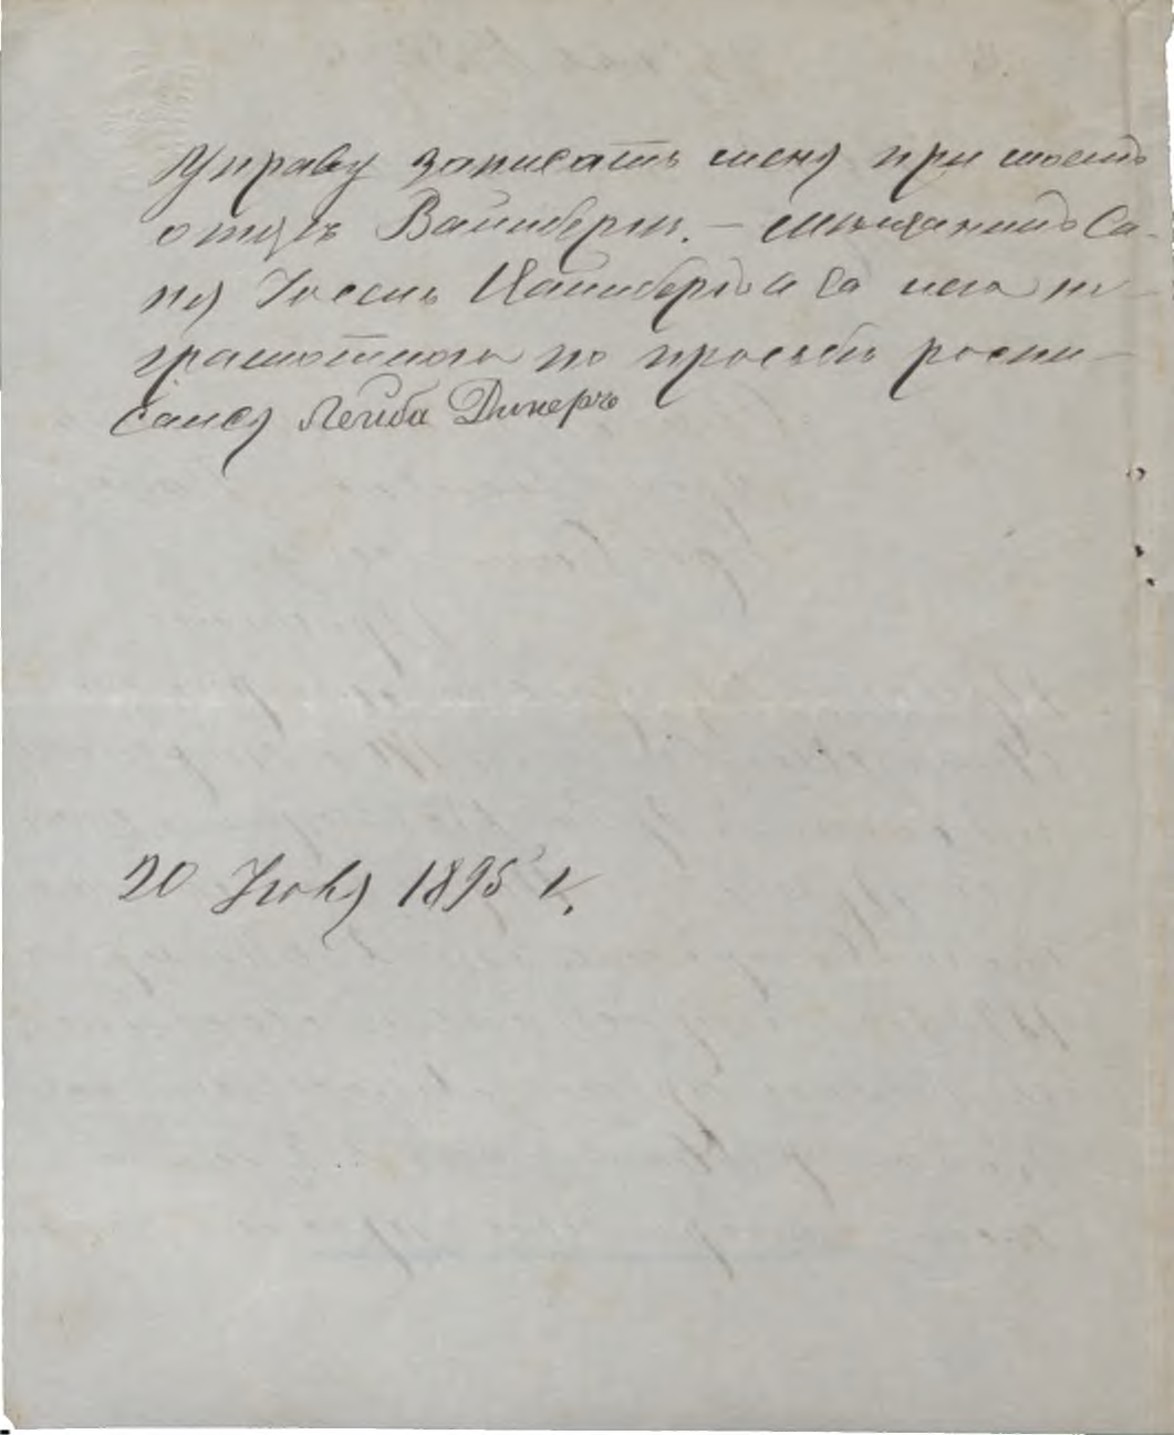 Управу записать меня при моемъ
отцѣ Вайнберги. — Мѣщанинъ Са-
пя Іосель Вайнбергъ а за него не
грамотнаго по просьбѣ роспи-
сался Лейба Динеръ
20 Іюля 1895 г.